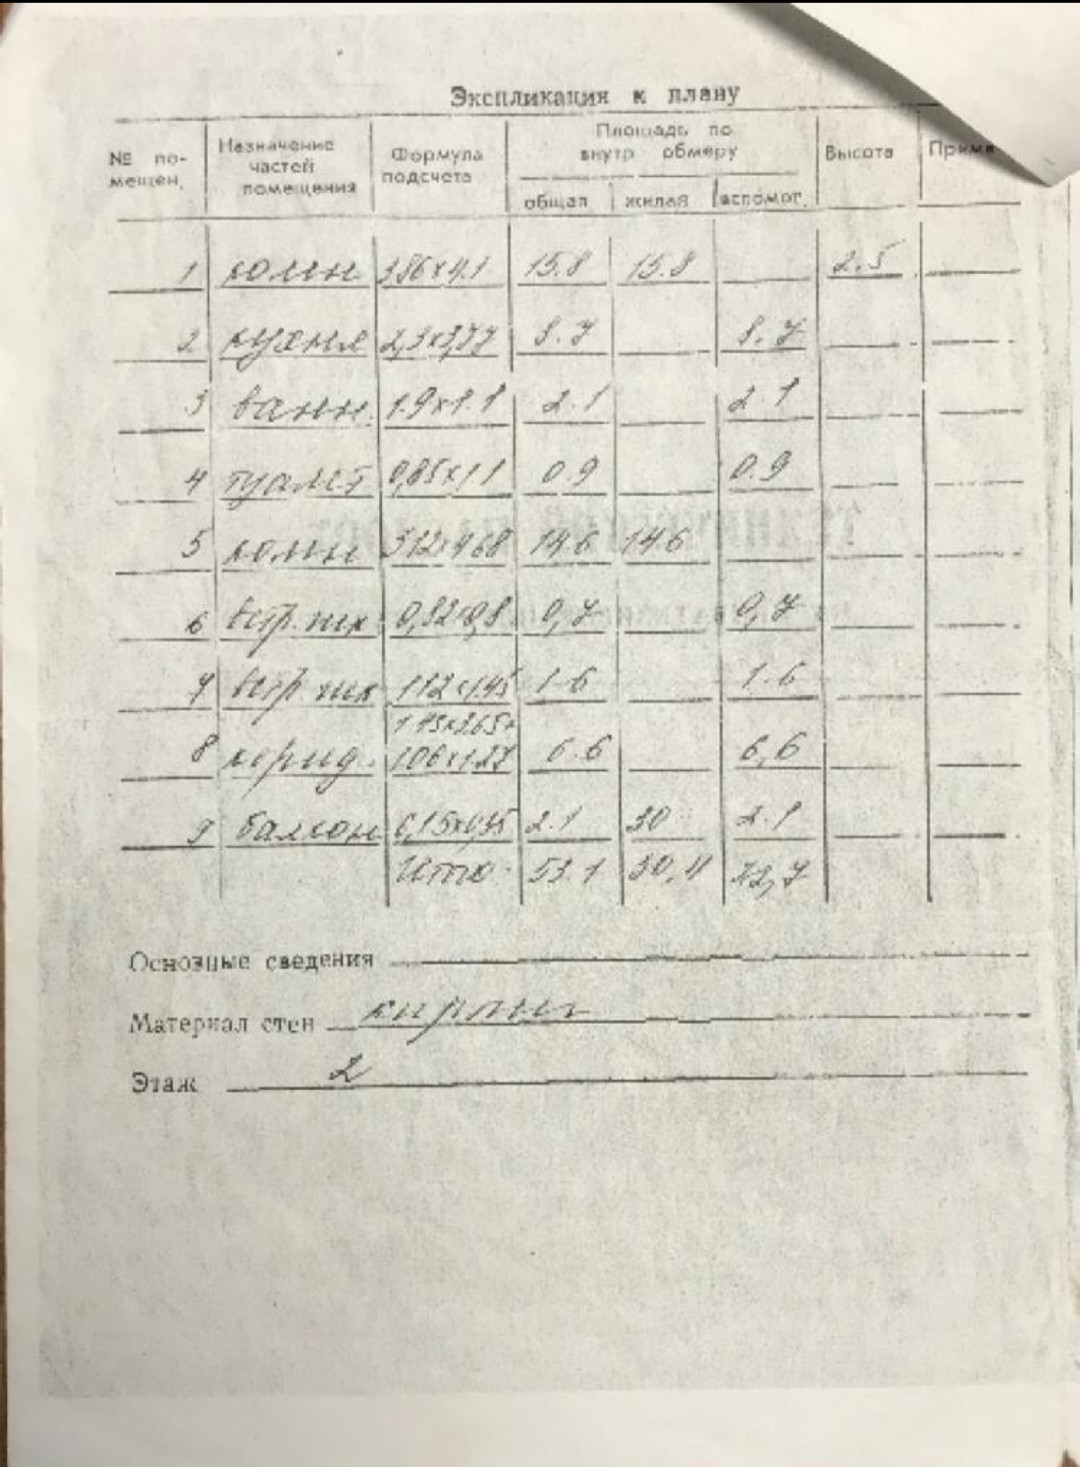 Экспликация к плану
№ помещен. Назначение частей помещения Формула подсчета Площадь по внутр обмеру Высота Приме
общая жилая вспомог.
1 комн 3.86х4.1 15.8 15.8 2.5
2 кухня 2,3х3,77 8.7 8.7
3 ванн. 1.9х1.1 2.1 2.1
4 туалет 0,85х1,1 0.9 0.9
5 комн 3.12х4.68 14.6 14.6
6 встр. шк 0,82х0,8 0,7 0,7
7 встр шк 1.12х1,45 1.6 1.6
8 корид. 6.6 6,6
9 балкон 2.1 30 2.1
Итого 53.1 30,4 22,7
Основные сведения
Материал стен кирпич
Этаж 2